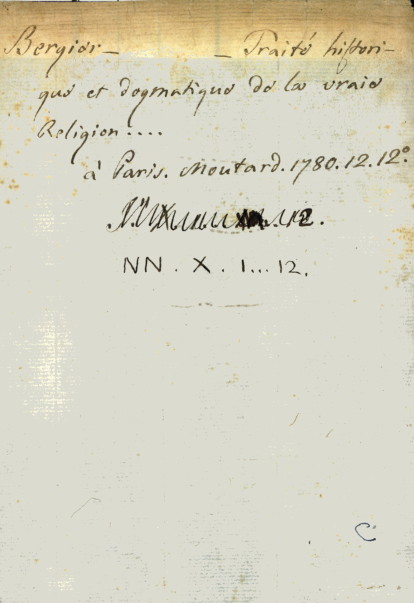 Bergier — — Traité histori-
que et dogmatique de la vraie
Religion....
à Paris. Moutard. 1780. 12. 12°
12.
NN. X. 1... 12.
C